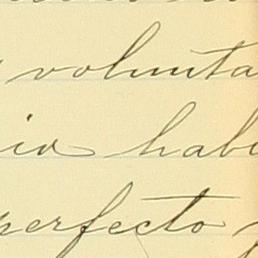 volunta
io hab
perfecto